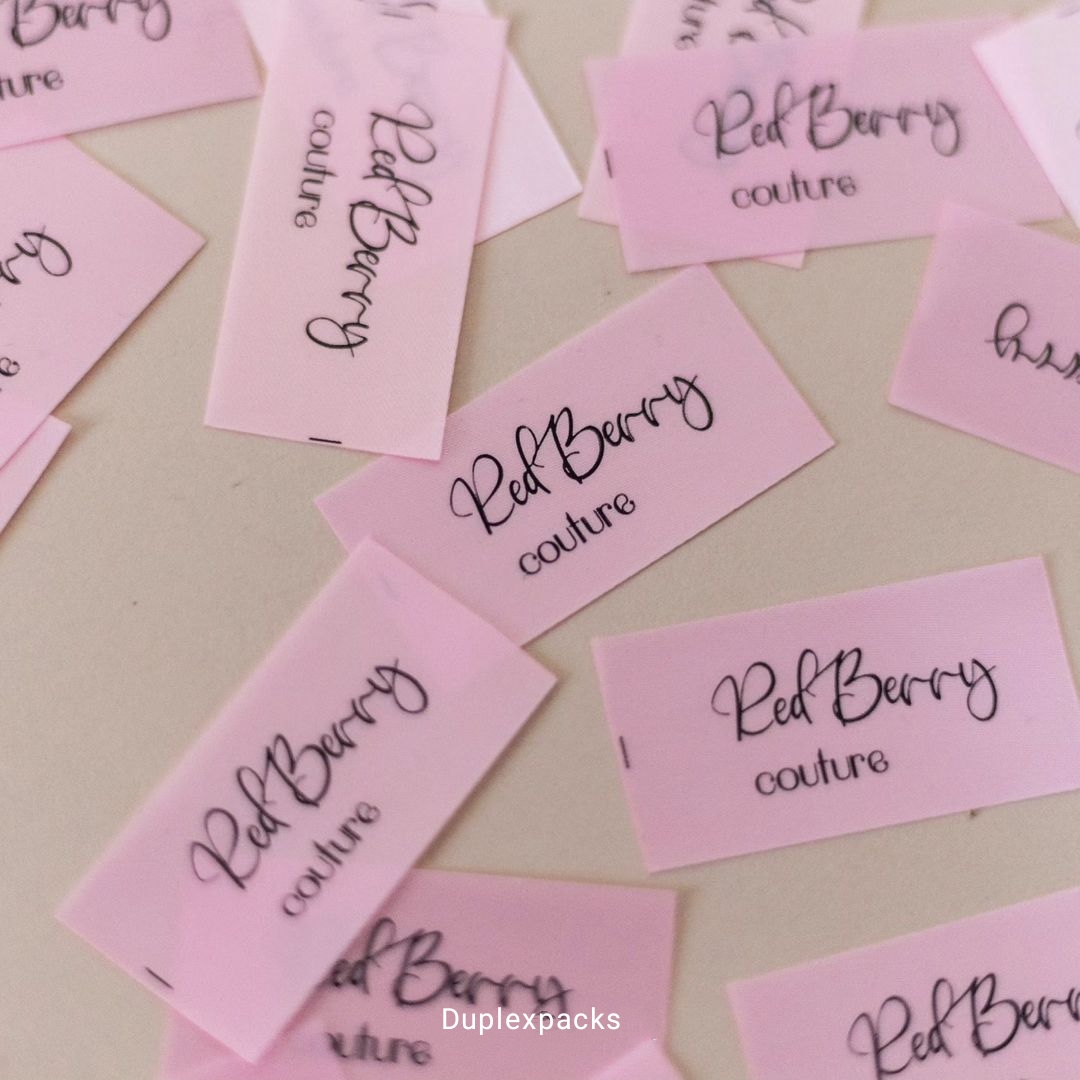 Berry
ture
Red Berry
couture
Red Berry
couture
Red Berry
couture
Red Berry
couture
Red Berry
couture
ed Berry
outure
Red Berr
Duplexpacks